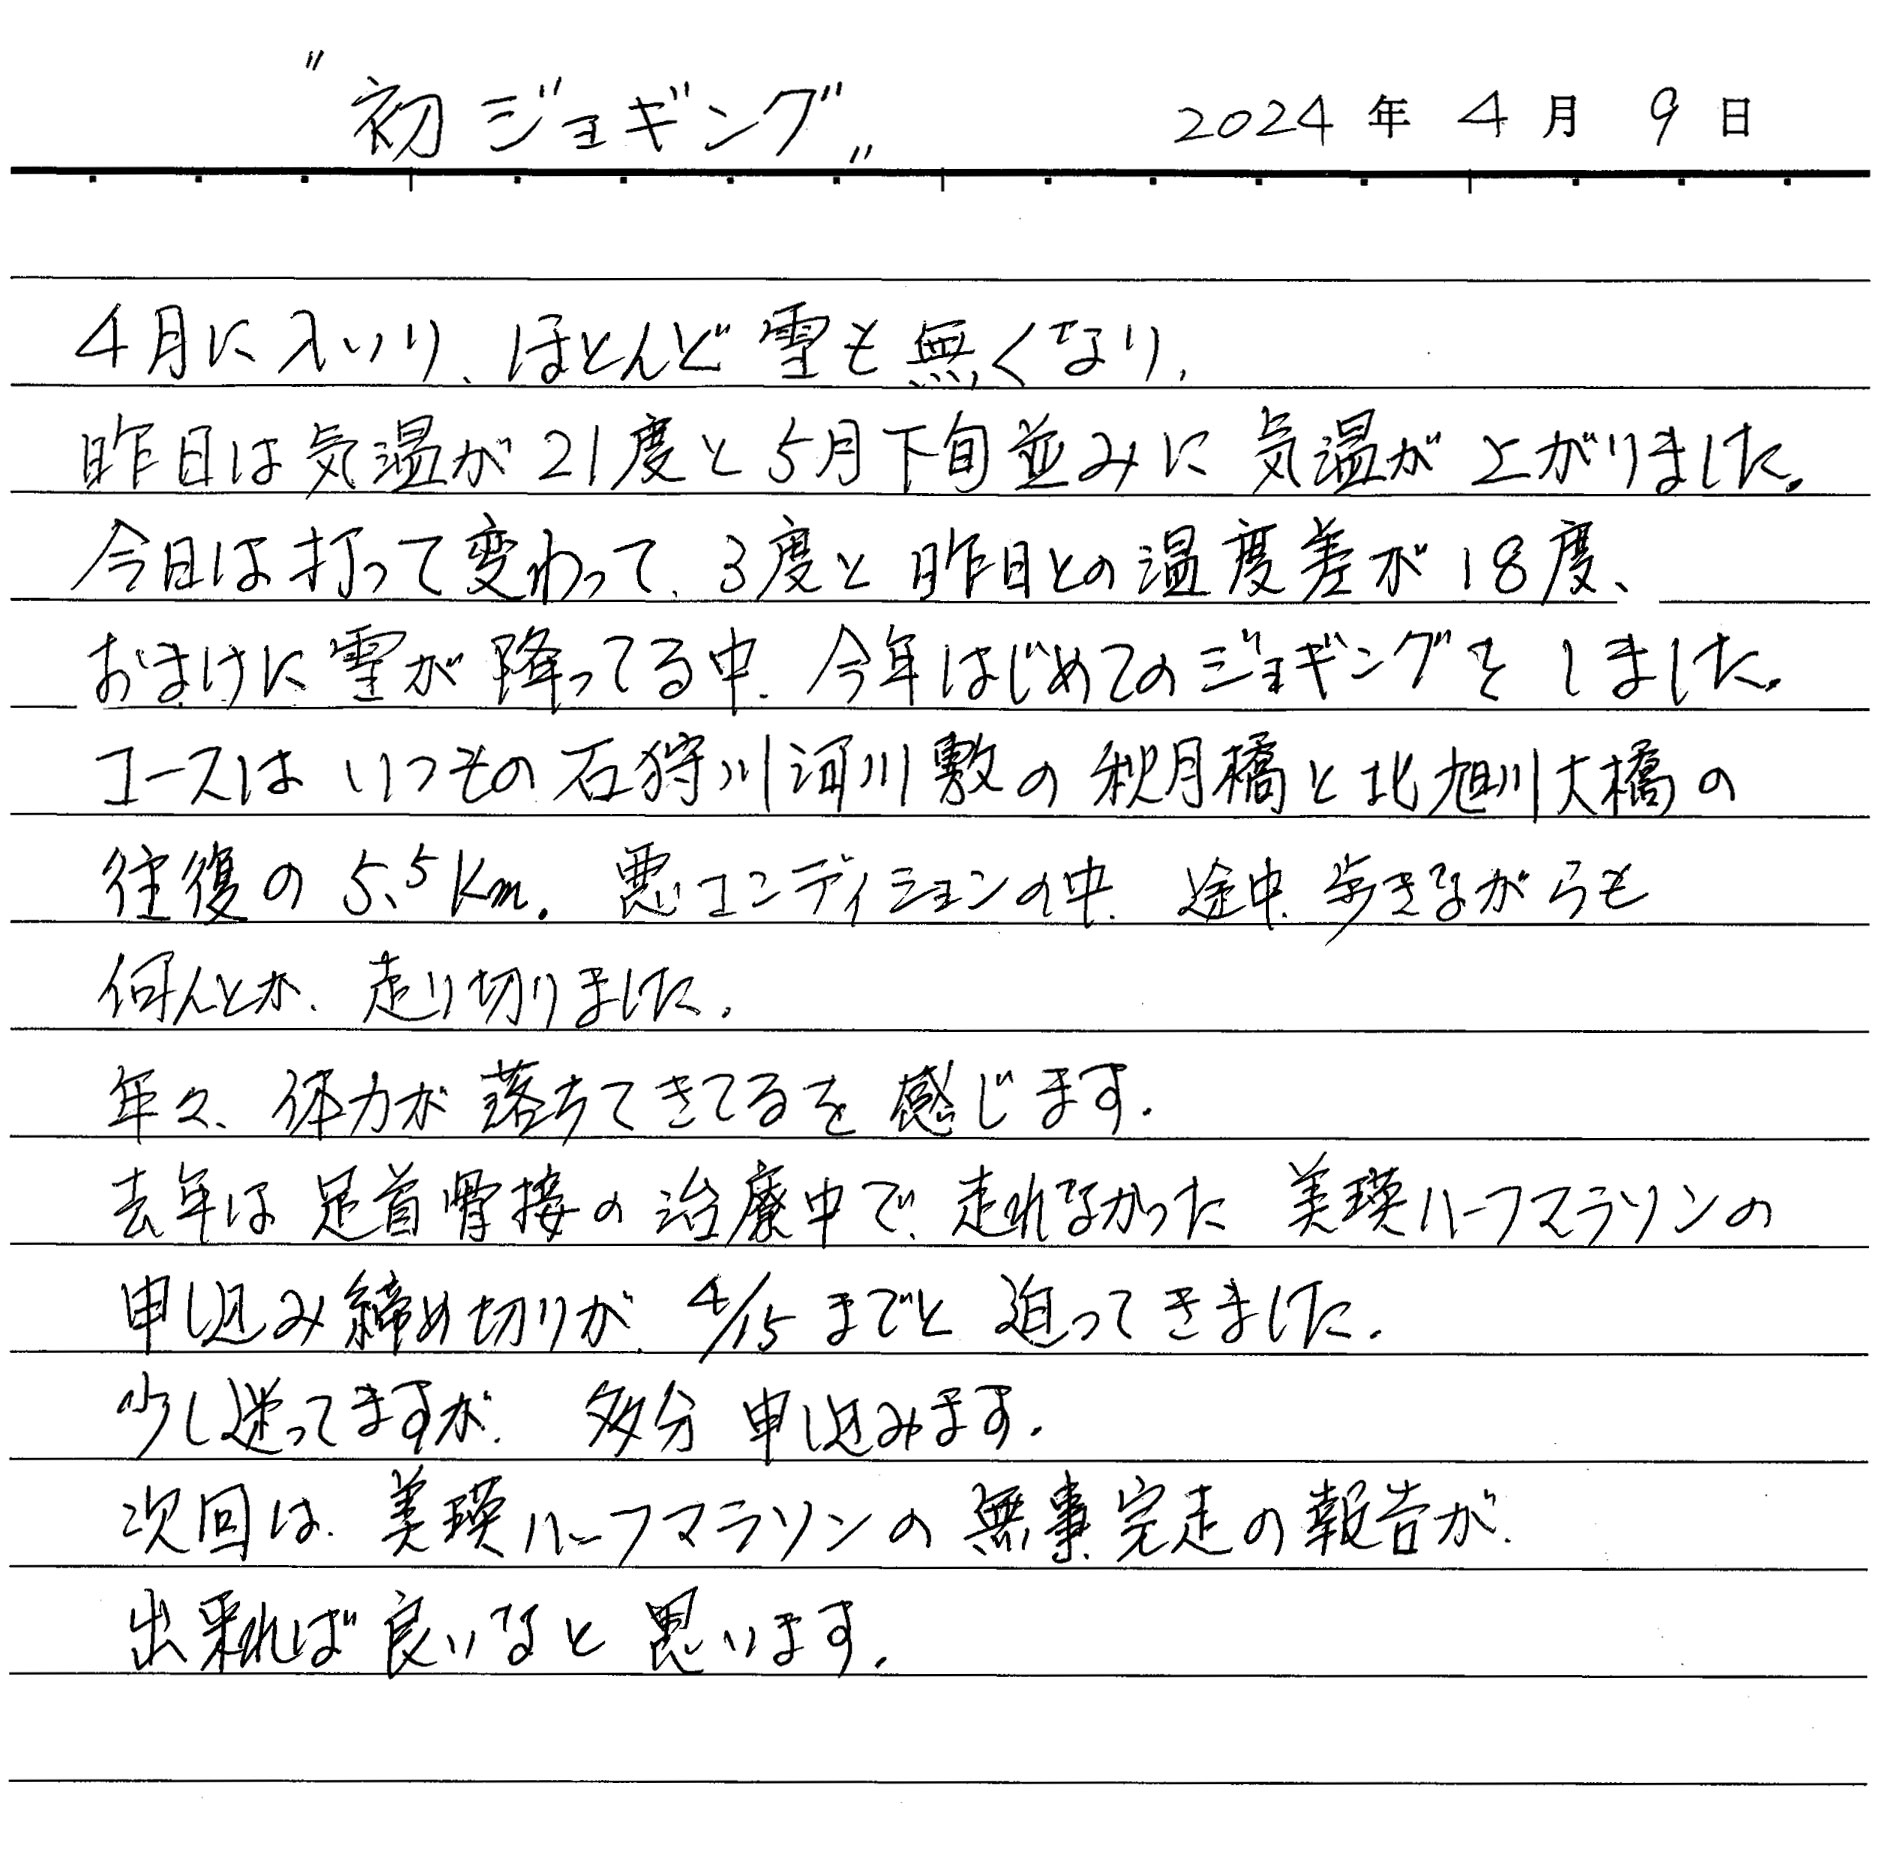 "初ジョギング" 2024年4月9日
4月に入いり、ほとんど雪も無くなり、
昨日は気温が21度と5月下旬並みに気温が上がりました。
今日は打って変わって、3度と昨日との温度差が18度、
おまけに雪が降ってる中、今年はじめてのジョギングをしました。
コースはいつもの石狩川河川敷の秋月橋と北旭川大橋の
往復の5.5Km。悪いコンディションの中、途中、歩きながらも
何んとか、走り切りました。
年々、体力が落ちてきてるを感じます。
去年は足首骨接の治療中で、走れなかった美瑛ハーフマラソンの
申し込み締め切りが、4/15までと迫ってきました。
少し迷ってますが、多分申し込みます。
次回は、美瑛ハーフマラソンの無事、完走の報告が、
出来れば良いなと思います。